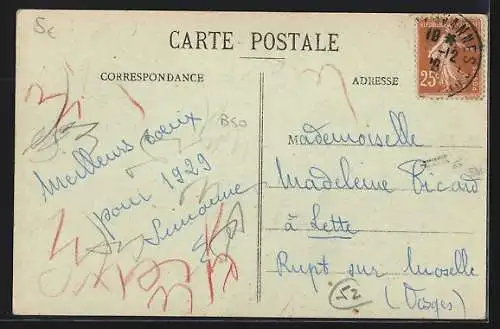 5c
CARTE POSTALE
CORRESPONDANCE
ADRESSE
25c
B50
Meilleurs voeux
pour 1929
Simonne
Mademoiselle
Madeleine Picard
à Lette
Rupt sur Moselle
(Vosges)
52